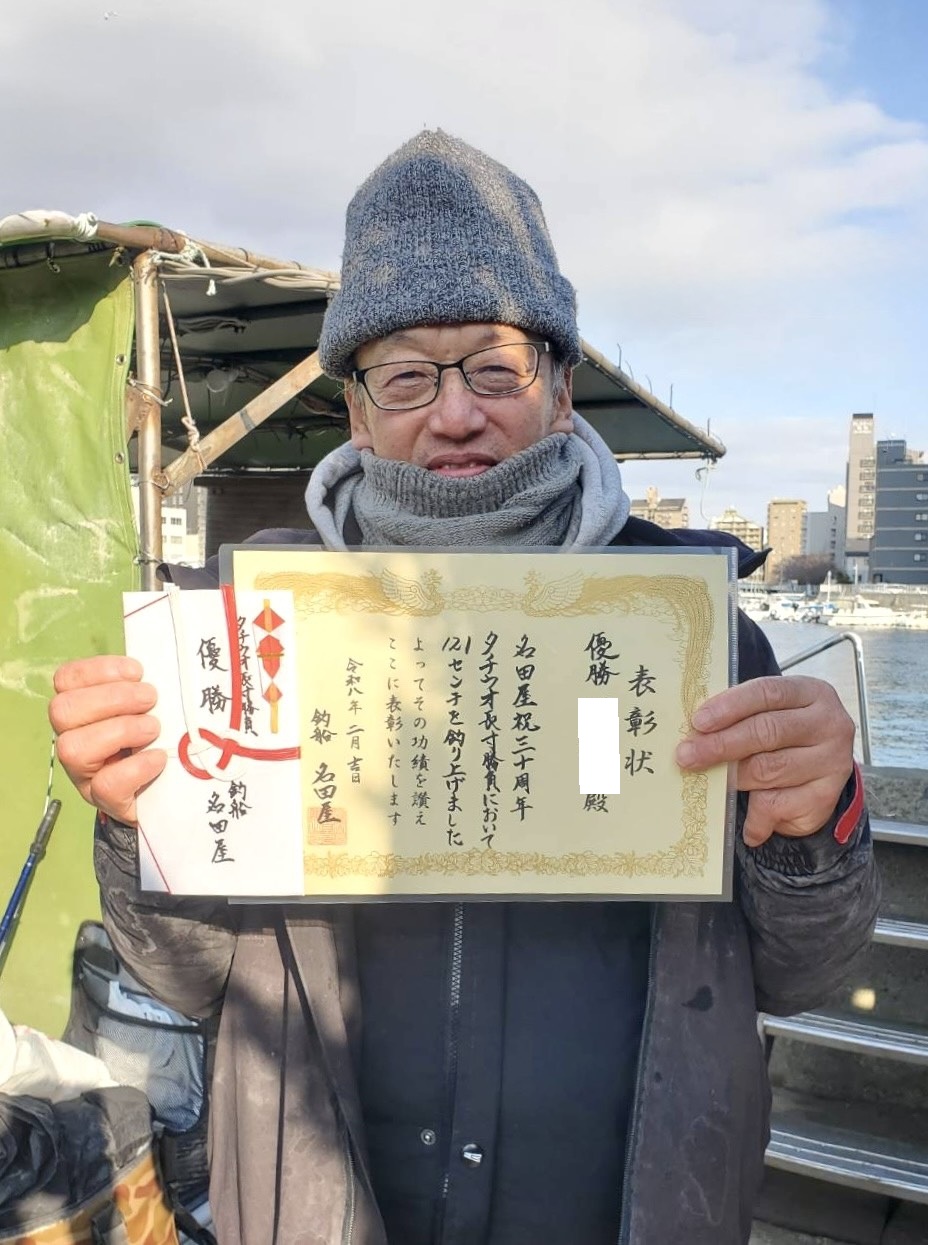 表彰状
優勝
殿
名田屋祝三十周年
タチウオ長寸勝負において
121センチを釣り上げました
よってその功績を讃え
ここに表彰いたします
令和八年 二月吉日
釣船 名田屋
タチウオ長寸勝負
優勝
釣船 名田屋